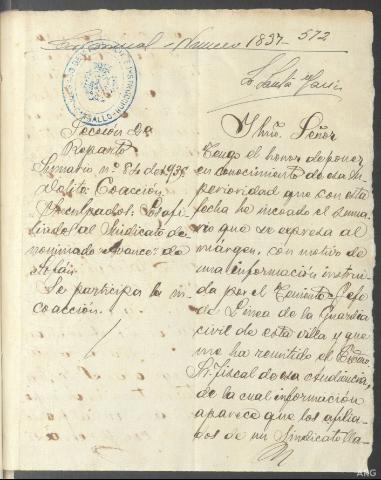 Personal Numero 1837- 572
JUZGADO DE
INSTRUCCION
Sección de
Reparto
Sumario nº 8 de 1936
Delito: Coacción
Inculpados: Los afi-
liados al Sindicato de-
nominado "Avance" de
Se participa la in-
coacción.
Ilmo. Señor
Tengo el honor de poner
en conocimiento de esa Su-
perioridad que con esta
fecha he incoado el suma-
rio que se expresa al
márgen, con motivo de
una información instrui-
da por el Teniente Jefe
de Línea de la Guardia
civil de esta villa y que
me ha remitido el Excmo
Sr. Fiscal de esa Audiencia,
de la cual información
aparece que los afilia-
dos de un Sindicato lla-
AHG